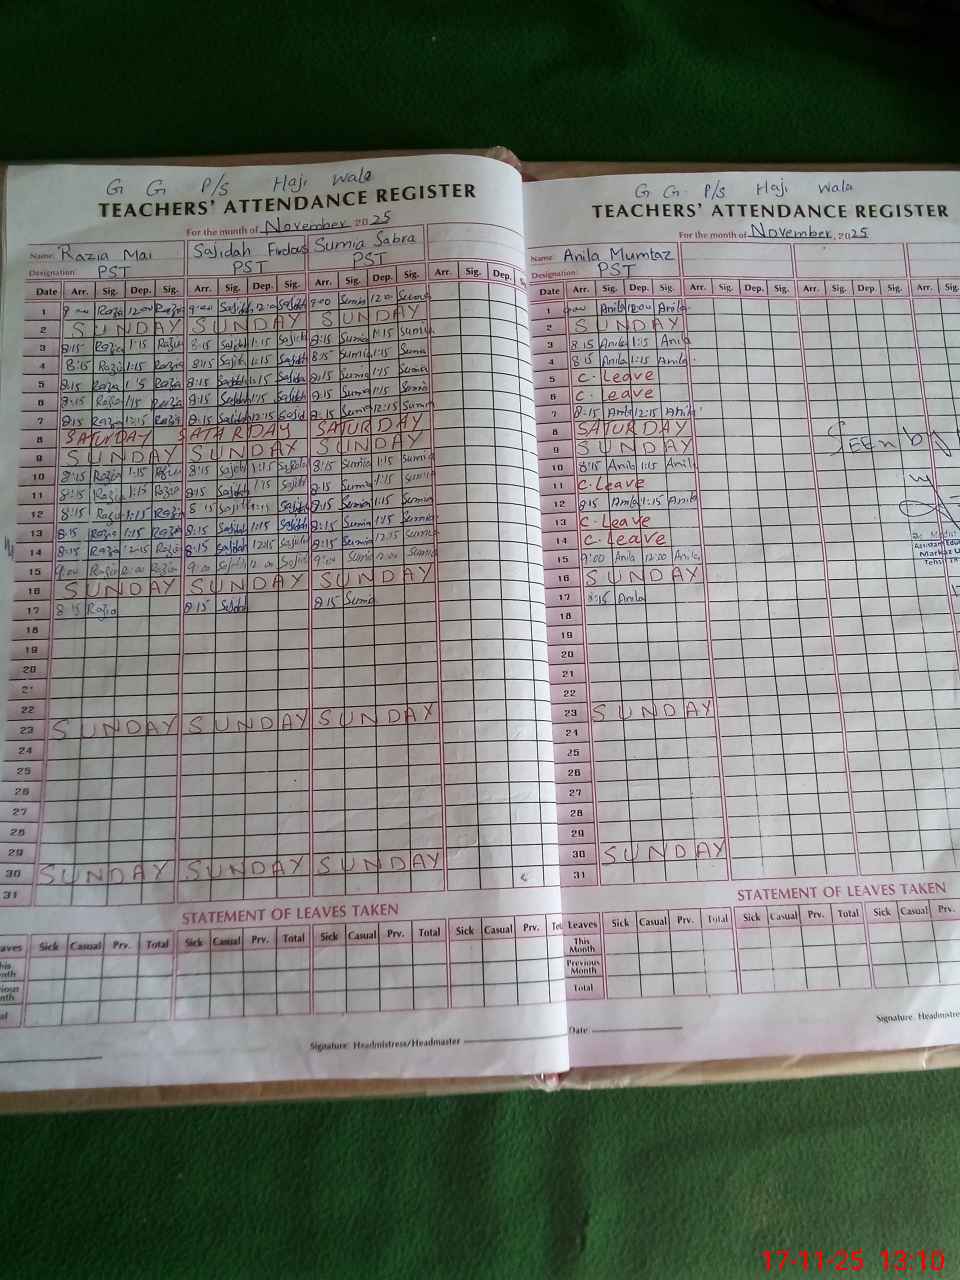 G G P/S Haji Wala
TEACHERS' ATTENDANCE REGISTER
For the month of November 2025
Name: Razia Mai Sajidah Firdous Sumia Sabra
Designation: PST PST PST
Date Arr. Sig. Dep. Sig. Arr. Sig. Dep. Sig. Arr. Sig. Dep. Sig. Arr. Sig. Dep.
1 9:00 Razia 12:00 Razia 9:00 Sajidah 12:00 Sajidah 9:00 Sumia 12:00 Sumia
2 SUNDAY SUNDAY SUNDAY
3 8:15 Razia 1:15 Razia 8:15 Sajidah 1:15 Sajidah 8:15 Sumia 1:15 Sumia
4 8:15 Razia 1:15 Razia 8:15 Sajidah 1:15 Sajidah 8:15 Sumia 1:15 Sumia
5 8:15 Razia 1:15 Razia 8:15 Sajidah 1:15 Sajidah 8:15 Sumia 1:15 Sumia
6 8:15 Razia 1:15 Razia 8:15 Sajidah 1:15 Sajidah 8:15 Sumia 1:15 Sumia
7 8:15 Razia 12:15 Razia 8:15 Sajidah 12:15 Sajidah 8:15 Sumia 12:15 Sumia
8 SATURDAY SATARDAY SATURDAY
9 SUNDAY SUNDAY SUNDAY
10 8:15 Razia 1:15 Razia 8:15 Sajidah 1:15 Sajidah 8:15 Sumia 1:15 Sumia
11 8:15 Razia 1:15 Razia 8:15 Sajidah 1:15 Sajidah 8:15 Sumia 1:15 Sumia
12 8:15 Razia 1:15 Razia 8:15 Sajidah 1:15 Sajidah 8:15 Sumia 1:15 Sumia
13 8:15 Razia 1:15 Razia 8:15 Sajidah 1:15 Sajidah 8:15 Sumia 1:15 Sumia
14 8:15 Razia 12:15 Razia 8:15 Sajidah 12:15 Sajidah 8:15 Sumia 12:15 Sumia
15 9:00 Razia 12:00 Razia 9:00 Sajidah 12:00 Sajidah 9:00 Sumia 12:00 Sumia
16 SUNDAY SUNDAY SUNDAY
17 8:15 Razia 8:15 Sajidah 8:15 Sumia
18
19
20
21
22
23 SUNDAY SUNDAY SUNDAY
24
25
26
27
28
29
30 SUNDAY SUNDAY SUNDAY
31
STATEMENT OF LEAVES TAKEN
Sick Casual Prv. Total Sick Casual Prv. Total Sick Casual Prv. Total Sick Casual Prv.
Signature: Headmistress/Headmaster
G G P/S Haji Wala
TEACHERS' ATTENDANCE REGISTER
For the month of November, 2025
Name: Anila Mumtaz
Designation: PST
Date Arr. Sig. Dep. Sig. Arr. Sig. Dep. Sig. Arr. Sig.
1 9:00 Anila 12:00 Anila
2 SUNDAY
3 8:15 Anila 1:15 Anila
4 8:15 Anila 1:15 Anila
5 C. Leave
6 C. Leave
7 8:15 Anila 12:15 Anila
8 SATURDAY
9 SUNDAY
10 8:15 Anila 1:15 Anila
11 C. Leave
12 8:15 Anila 1:15 Anila
13 C. Leave
14 C. Leave
15 9:00 Anila 12:00 Anila
16 SUNDAY
17 8:15 Anila
18
19
20
21
22
23 SUNDAY
24
25
26
27
28
29
30 SUNDAY
31
Seen by
STATEMENT OF LEAVES TAKEN
Leaves Sick Casual Prv. Total Sick Casual Prv. Total Sick Casual Prv.
This Month
Previous Month
Total
Date
17-11-25 13:10